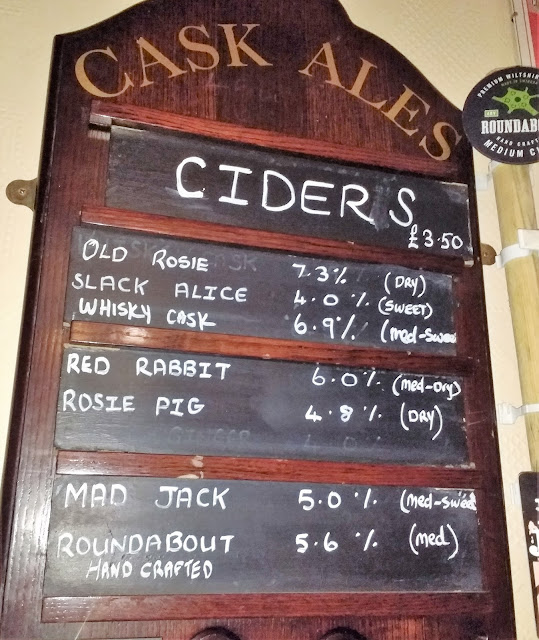 CASK ALES
CIDERS
£3.50
OLD ROSIE 7.3% (DRY)
SLACK ALICE 4.0% (SWEET)
WHISKY CASK 6.9% (med-Swee
RED RABBIT 6.0% (med-DRy)
ROSIE PIG 4.8% (DRY)
GINGER 4.0%
MAD JACK 5.0% (med-sweet
ROUNDABOUT 5.6% (med)
HAND CRAFTED
PREMIUM WILTSHIR
ROUNDABO
HAND CRAFT
MEDIUM CI